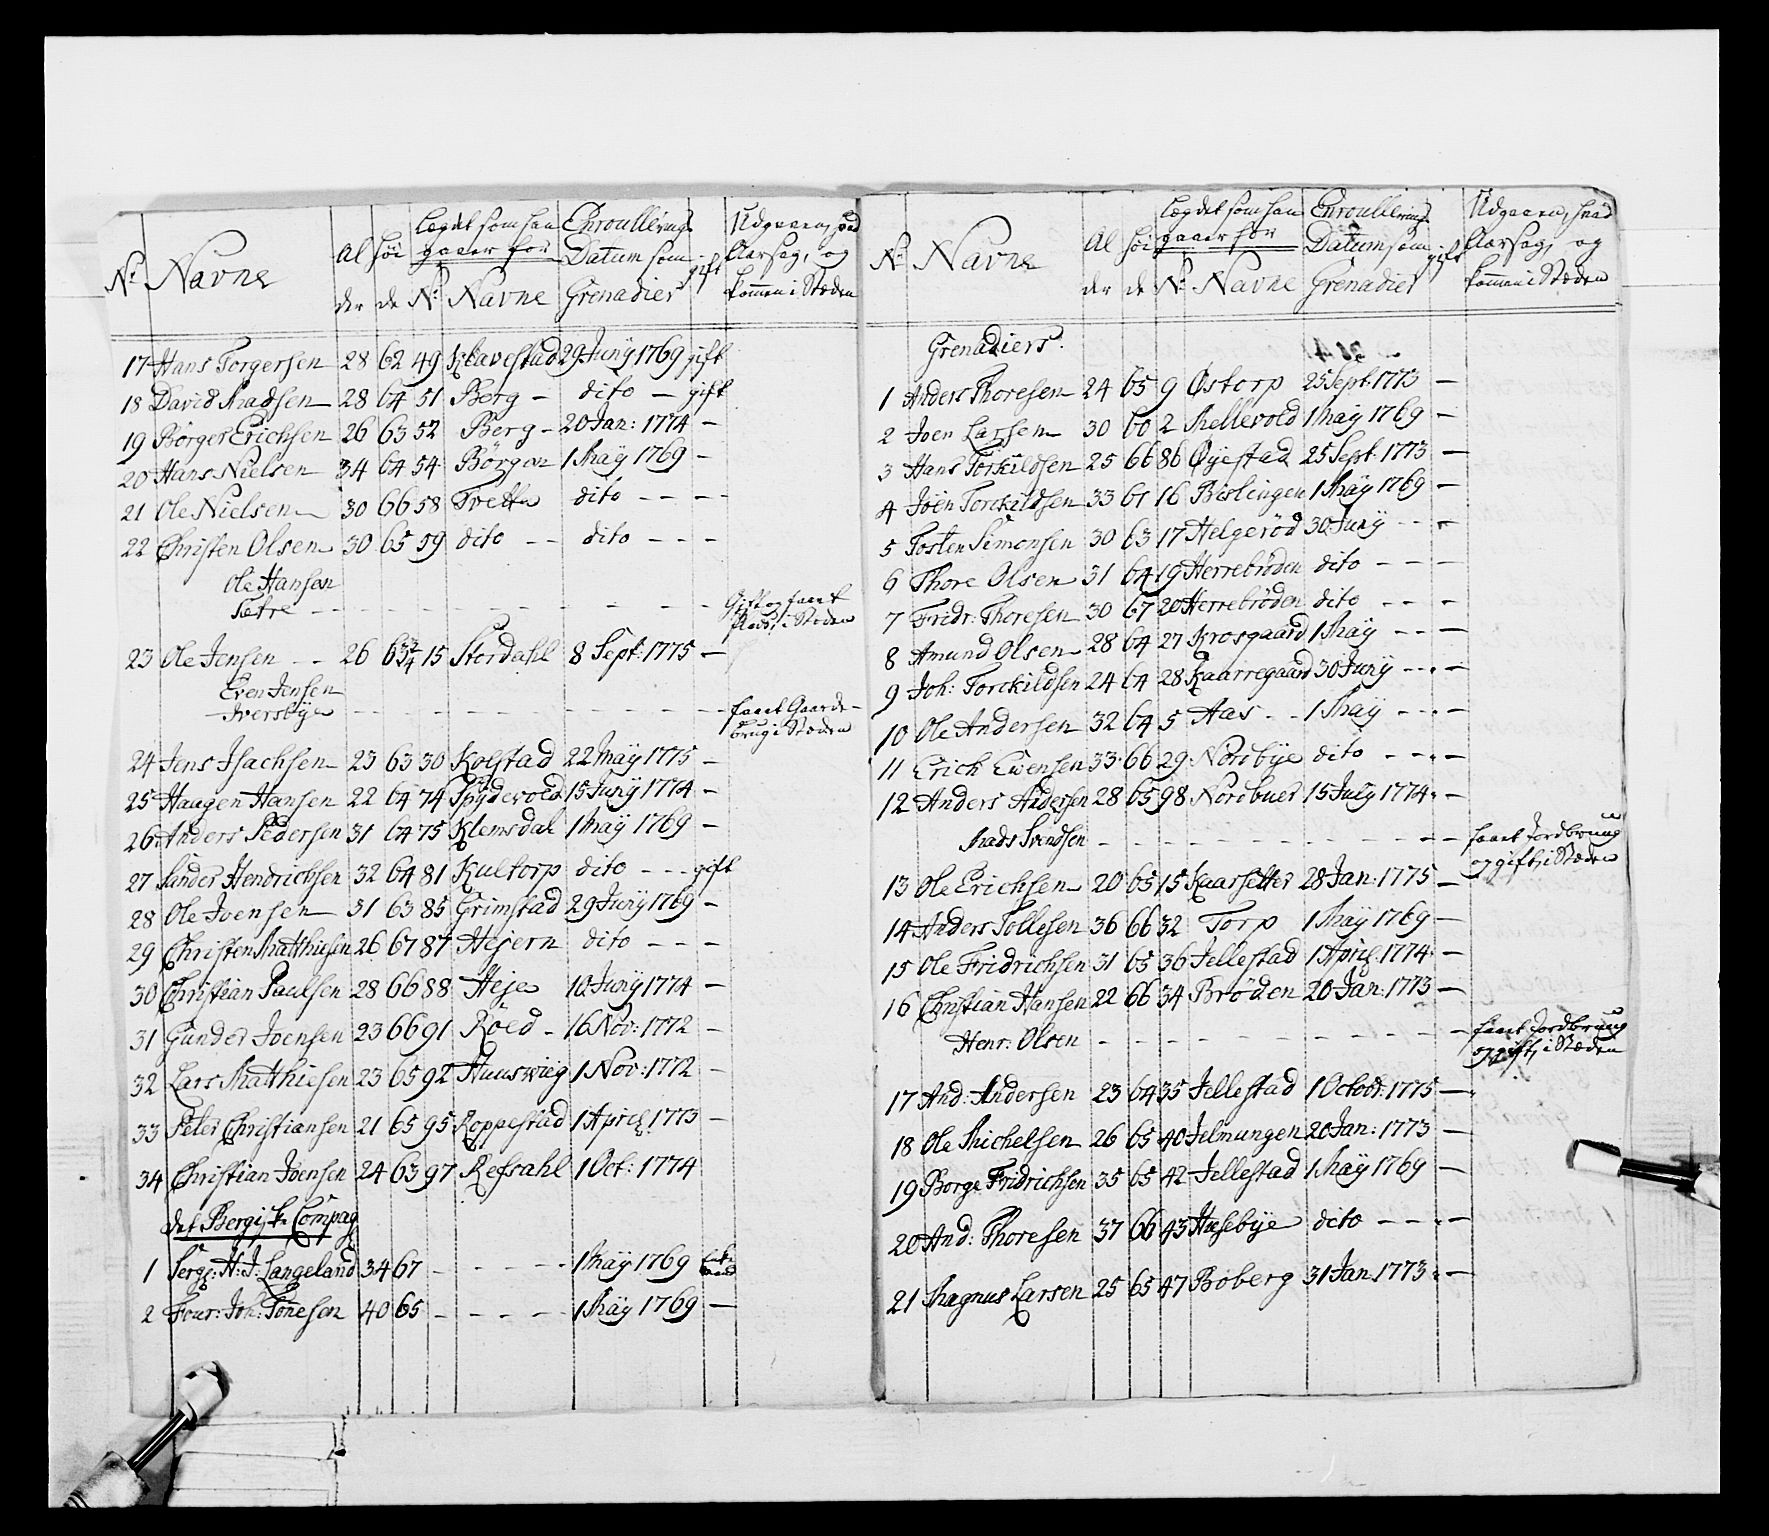 No Navne Al der Høi de Lægdet som han gaaer for No Navne Enroullerings Datum som Grenadier gift Udgaaen, hvad Aarsag, og kommen i Stæden
17 Hans Torgersen 28 62 49 Klavestad 29 Juny 1769 gift
18 David Madsen 28 64 51 Berg - dito - gift
19 Børger Erichsen 26 63 52 Berg - 20 Jan: 1774 -
20 Hans Nielsen 34 64 54 Børgen 1 May 1769 -
21 Ole Nielsen 30 66 58 Tvetta dito - - - -
22 Christen Olsen 30 65 59 dito - - dito - - -
Ole Hansen
Sætre - - - - - - - - - Gift og faaet Pladz, i Stæden
23 Ole Jensen - - 26 63 3/4 15 Stordahl 8 Sept: 1775 -
Even Jensen
Iversbye - - - - - - - - - faaet Gaard-brug i Stæden
24 Jens Isachsen 23 63 30 Kolstad 22 May 1775 -
25 Haagen Hansen 22 64 74 Spydevold 15 Juny 1774 -
26 Anders Pedersen 31 64 75 Klemsdal 1 May 1769 -
27 Sander Hendrichsen 32 64 81 Kultorp dito - - - gift
28 Ole Joensen 31 63 85 Grimstad 29 Juny 1769 -
29 Christen Matthiesen 26 67 87 Hejern dito - - -
30 Christian Paulsen 28 66 88 Heje 10 Juny 1774 -
31 Gunder Joensen 23 66 91 Röed - 16 Nov: 1772 -
32 Lars Matthiesen 23 65 92 Huuswieg 1 Nov: 1772 -
33 Peter Christiansen 21 65 95 Roppestad 1 April 1773 -
34 Christian Joensen 24 63 97 Refsahl 1 Oct: 1774
Det Bergiske Compag
1 Serg: H: J: Langeland 34 67 - - - - - 1 May 1769
2 Four: Joh: Tønesen 40 65 - - - - 1 May 1769 -
No Navne Al der Høi de Lægdet som han gaaer for No Navne Enroullerings Datum som Grenadier gift Udgaaen, hvad Aarsag, og kommen i Stæden
Grenadiers.
1 Anders Thoresen 24 65 9 Østorp 25 Sept 1773 -
2 Joen Larsen 30 60 2 Mellevold 1 May 1769 -
3 Hans Torkildsen 25 66 86 Øyestad 25 Sept. 1773 -
4 Joen Torckildsen 33 61 16 Bislingen 1 May 1769 -
5 Tosten Simonsen 30 63 17 Helgerød 30 Juny - - -
6 Thore Olsen 31 64 19 Herrebrøden dito - - -
7 Fridr: Thoresen 30 67 20 Herrebrøden dito - - -
8 Amund Olsen 28 64 27 Krosgaard 1 May - - -
9 Joh: Torckildsen 24 64 28 Kaarregaard 30 Juny - - -
10 Ole Andersen 32 64 5 Aas - - 1 May - - -
11 Erich Evensen 33 66 29 Nordbye dito - - -
12 Anders Andersen 28 65 98 Nordbuer 15 July 1774 -
Mads Svendsen - - - - - - - - - faaet Jordbruug og gift, i Stæden
13 Ole Erichsen 20 65 15 Kaarsetter 28 Jan: 1775 -
14 Anders Tollesen 36 66 32 Torp 1 May 1769 -
15 Ole Fridrichsen 31 65 36 Jellestad 1 April 1774 -
16 Christian Hansen 22 66 34 Brøden 20 Jan: 1773 -
Henr: Olsen - - - - - - - - - faaet Jordbruug og gift, i Stæden
17 And: Andersen 23 64 35 Jellestad 1 Octobr: 1775 -
18 Ole Michelsen 26 65 40 Jelmungen 20 Jan: 1773 -
19 Borge Fridrichsen 35 65 42 Jellestad 1 May 1769 -
20 And: Thoresen 37 66 43 Husebye dito - - - -
21 Magnus Larsen 25 65 47 Boberg 31 Jan 1773 -